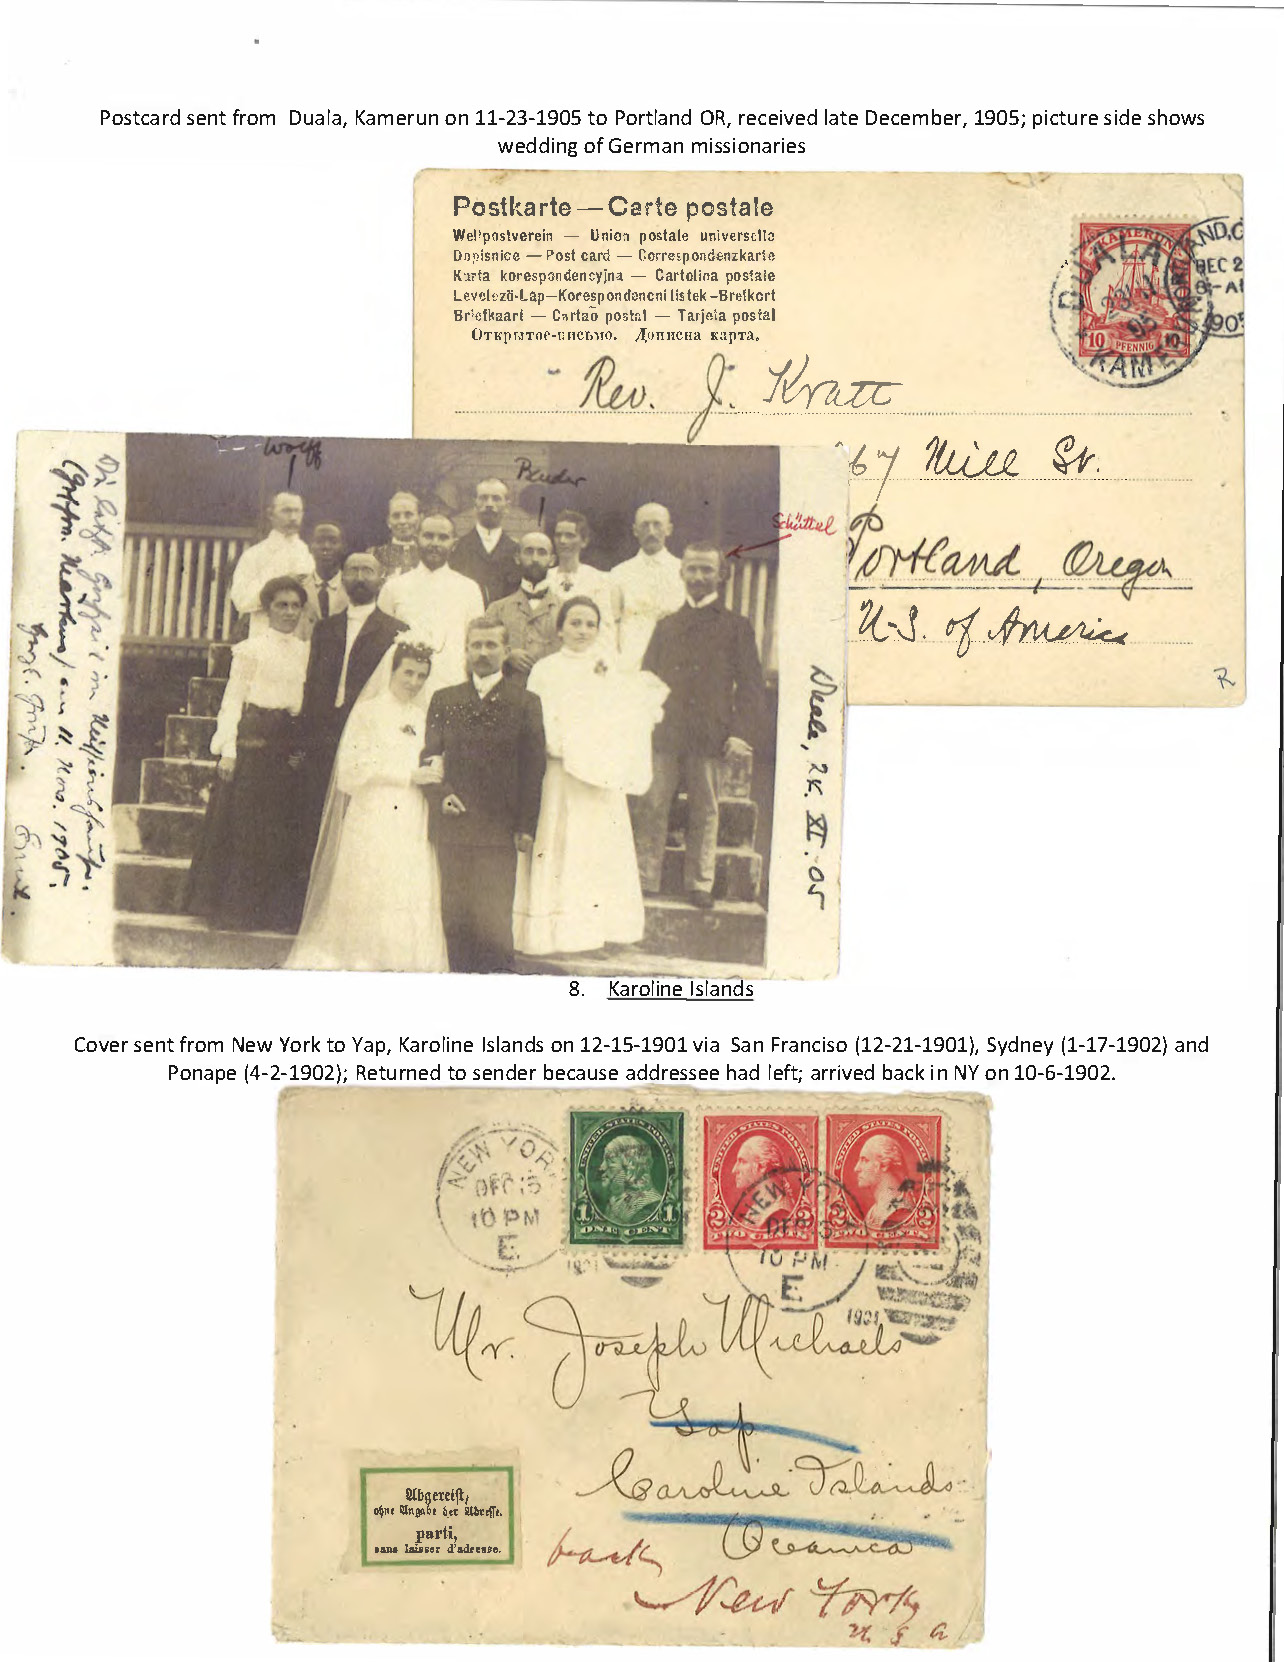 Postcard sent from Duala, Kamerun on 11-23-1905 to Portland OR, received late December, 1905; picture side shows
wedding of German missionaries
Postkarte — Carte postale
Weltpostverein — Union postale universelle
Dopisnice — Post card — Correspondenzkarte
Karta korespondencyjna — Cartolina postale
Levelező-Lap—Korespondencni listek-Brefkort
Briefkaart — Cartaõ postal — Tarjeta postal
Открытое-письмо. Дописна карта.
KAMERUN
10 PFENNIG 10
DUALA
23/11
05
KAMERUN
AND, O
DEC 2
8-AM
1905
Rev. J. Kratt
67 Mill St.
Portland, Oregon
U.S. of America
Wolff
Bender
Schüttel
Duala, 2k. XI. 05
11. Nov. 1905.
8. Karoline Islands
Cover sent from New York to Yap, Karoline Islands on 12-15-1901 via San Franciso (12-21-1901), Sydney (1-17-1902) and
Ponape (4-2-1902); Returned to sender because addressee had left; arrived back in NY on 10-6-1902.
NEW YORK
DEC 15
10 PM
E
1901
UNITED STATES POSTAGE
1 ONE CENT 1
UNITED STATES POSTAGE
2 TWO CENTS 2
UNITED STATES POSTAGE
2 TWO CENTS 2
NEW YORK
DEC 15
10 PM
E
1901
Mr. Joseph Michaels
Yap
Caroline Islands
Oceanica
Abgereist,
ohne Angabe der Adresse.
parti,
sans laisser d'adresse.
back
New York
U S A